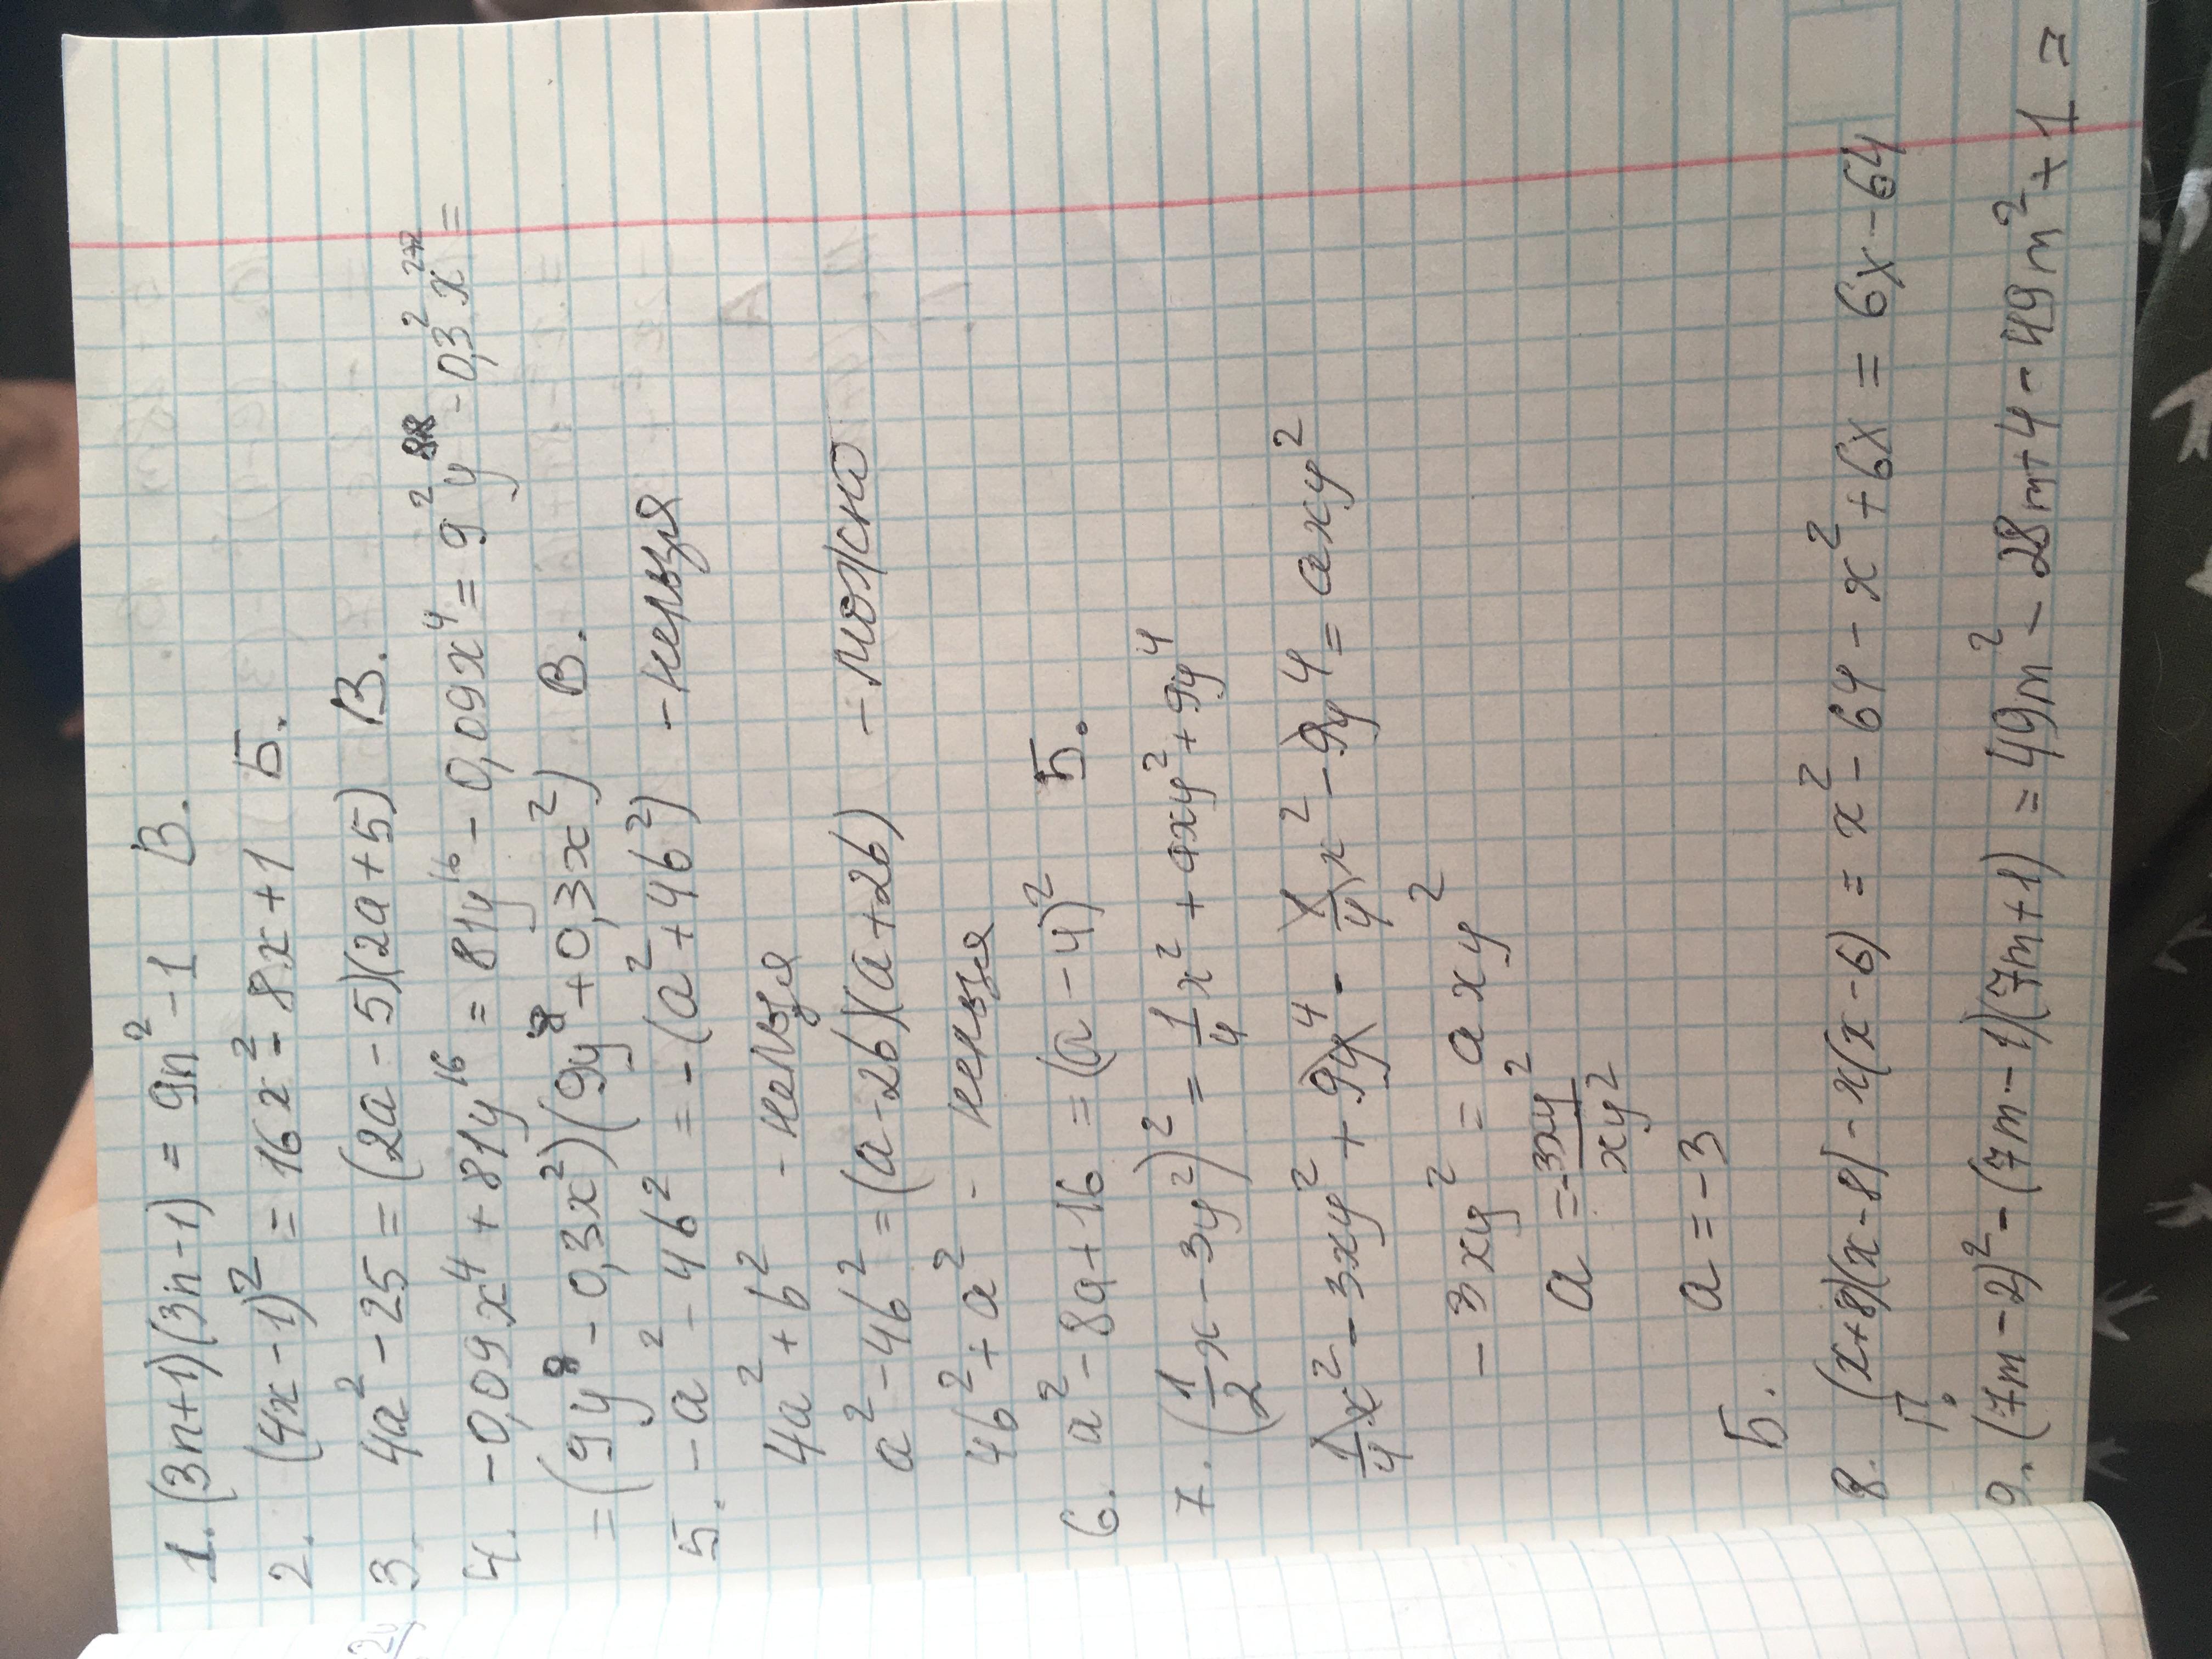 1. (3n+1)(3n-1) = 9n² - 1 В.
2. (4x-1)² = 16x² - 8x + 1 Б.
3. 4a² - 25 = (2a - 5)(2a + 5) В.
4. -0,09x⁴ + 81y¹⁶ = 81y¹⁶ - 0,09x⁴ = 9²y⁸ - 0,3²x² =
= (9y⁸ - 0,3x²)(9y⁸ + 0,3x²) В.
5. -a² - 4b² = -(a² + 4b²) - нельзя
4a² + b² - нельзя
a² - 4b² = (a - 2b)(a + 2b) - можно
4b² + a² - нельзя
6. a² - 8a + 16 = (a - 4)² Б.
7. (1/2 x - 3y²)² = 1/4 x² + axy² + 9y⁴
1/4 x² - 3xy² + 9y⁴ - 1/4 x² - 9y⁴ = axy²
- 3xy² = axy²
a = -3xy²/xy²
a = -3
Б.
8. (x+8)(x-8) - x(x-6) = x² - 64 - x² + 6x = 6x - 64
Г.
9. (7m - 2)² - (7m - 1)(7m + 1) = 49m² - 28m + 4 - 49m² + 1 =